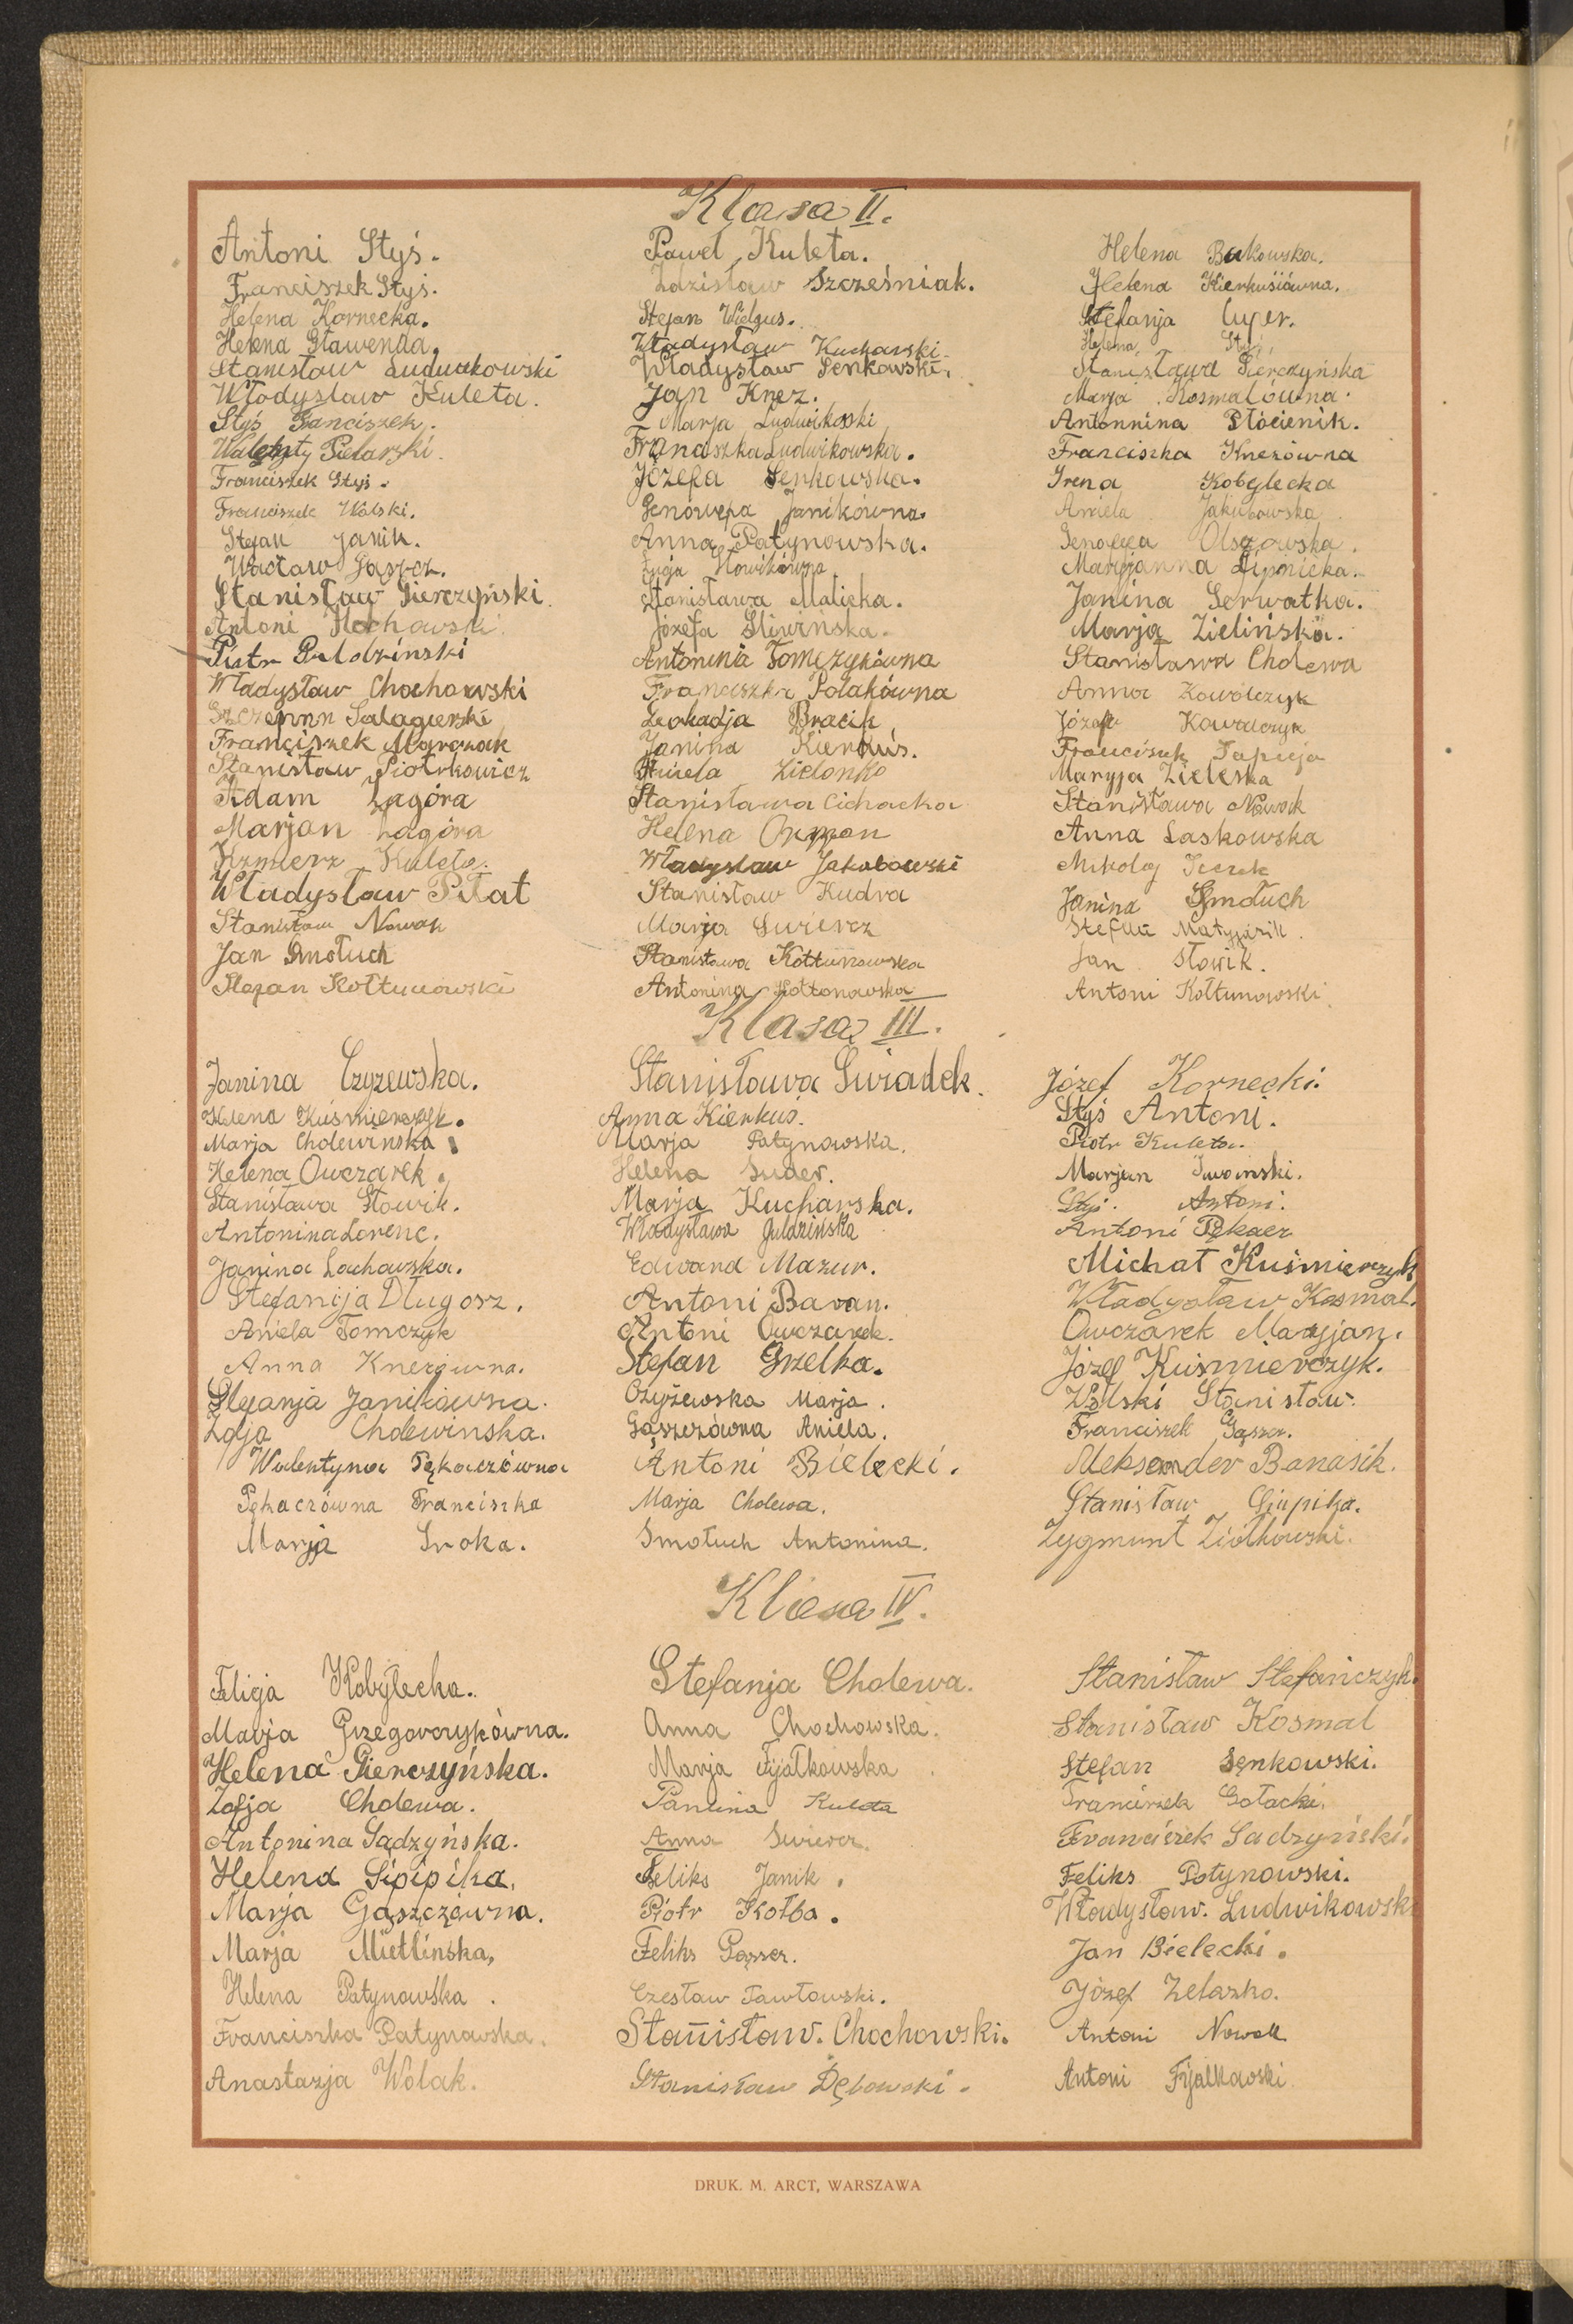 Klasa II.
Antoni Styś.
Franciszek Styś.
Helena Kornecka.
Helena Gławenda.
Stanisław Ludwikowski
Władysław Kuleta.
Styś Franciszek.
Walenty Pielarski.
Franciszek Styś.
Franciszek Wolski.
Stefan Janik.
Wacław Gąszcz.
Stanisław Pierczyński
Antoni Hochowski
Piotr
Władysław Chochowski
Szczepan Salagierski
Franciszek Marczak
Stanisław Piotrkowicz
Adam Zagóra
Marjan Zagóra
Kzmierz Kuleta.
Władysław Piłat
Stanisław Nowak
Jan Smołuch
Stefan Kołtunowski
Paweł Kuleta.
Zdzisław Szcześniak.
Stefan Wielgus.
Władysław Kucharski
Władysław Senkowski.
Jan Knez.
Marja Ludwikoski
Franciszka Ludwikowska.
Józefa Senkowska.
Genowefa Janikówna.
Anna Patynowska.
Zofja Słowikówna
Stanisława Malicka.
Józefa Śliwińska.
Antonina Tomczykówna
Franciszka Polakówna
Leokadja Bracik
Janina Kierkuś.
Aniela Zielonko
Stanisława Cichacka
Helena
Władysław Jakubowski
Stanisław Kudra
Marja Swiercz
Stanisława Kołtunowska
Antonina Kołtonowska
Helena Bukowska.
Helena Kierkuśiówna.
Stefanja Cuper.
Helena Styś
Stanisława Pierczyńska
Marja Kosmalówna.
Antonnina Płócienik.
Franciszka Knezówna
Irena Kobylecka
Aniela Jakubowska.
Genowefa Olszowska.
Maryjanna Lipnicka.
Janina Serwatka.
Marja Zielińska.
Stanisława Cholewa
Anna Kowalczyk
Józef Kowalczyk
Franciszek Sapieja
Maryja Zieleska
Stanisława Nowak
Anna Laskowska
Mikołaj
Janina Smołuch
Stefan Matyjasik.
Jan Słowik.
Antoni Kołtunowski
Klasa III.
Janina Czyżewska.
Helena Kuśmierczyk.
Marja Cholewinska
Helena Owczarek.
Stanisława Słowik.
Antonina Lorenc.
Janina Lachowska.
Stefanija Długosz.
Aniela Tomczyk
Anna Knezówna.
Stefanja Janikówna.
Zofja Cholewinska.
Walentyna Pękaczówna
Pękaczówna Franciszka
Marja Sroka.
Stanisława Świadek.
Anna Kierkuś.
Marja Patynowska.
Helena Suder.
Marja Kucharska.
Władysława Guldzińska
Edward Mazur.
Antoni Baran.
Antoni Owczarek.
Stefan Grzelka.
Czyżewska Marja.
Gąszczówna Aniela.
Antoni Bielecki.
Marja Cholewa.
Smołuch Antonina.
Józef Kornecki.
Styś Antoni.
Piotr Kuleta.
Marjan Iwoinski.
Styś. Antoni.
Antoni Pękacz
Michał Kuśmierczyk
Władysław Kosmal.
Owczarek Maryjan.
Józef Kuśmierczyk.
Wolski Stanisław.
Franciszek Gąszcz.
Aleksander Banasik.
Stanisław Ginpika.
Zygmunt Ziółkowski.
Klasa IV.
Felicja Kobyłecka.
Marja Grzegorczykówna.
Helena Pierczyńska.
Zofja Cholewa.
Antonina Sądzyńska.
Helena Sipipika.
Marja Gąszczówna.
Marja Mietlińska,
Helena Patynowska.
Franciszka Patynowska.
Anastazja Wolak.
Stefanja Cholewa.
Anna Chochowska.
Marja Fijałkowska.
Paulina Kuleta
Anna Swiercz.
Feliks Janik.
Piotr Kołba.
Feliks Gąszcz.
Czesław Pawłowski.
Stanisław. Chochowski.
Stanisław Dębowski.
Stanisław Stefańczyk.
Stanisław Kosmal
Stefan Senkowski.
Franciszek Gołacki.
Franciszek Sadzyński.
Feliks Potynowski.
Władysław. Ludwikowski
Jan Bielecki.
Józef Zelazko.
Antoni Nowak
Antoni Fijałkowski.
DRUK. M. ARCT, WARSZAWA